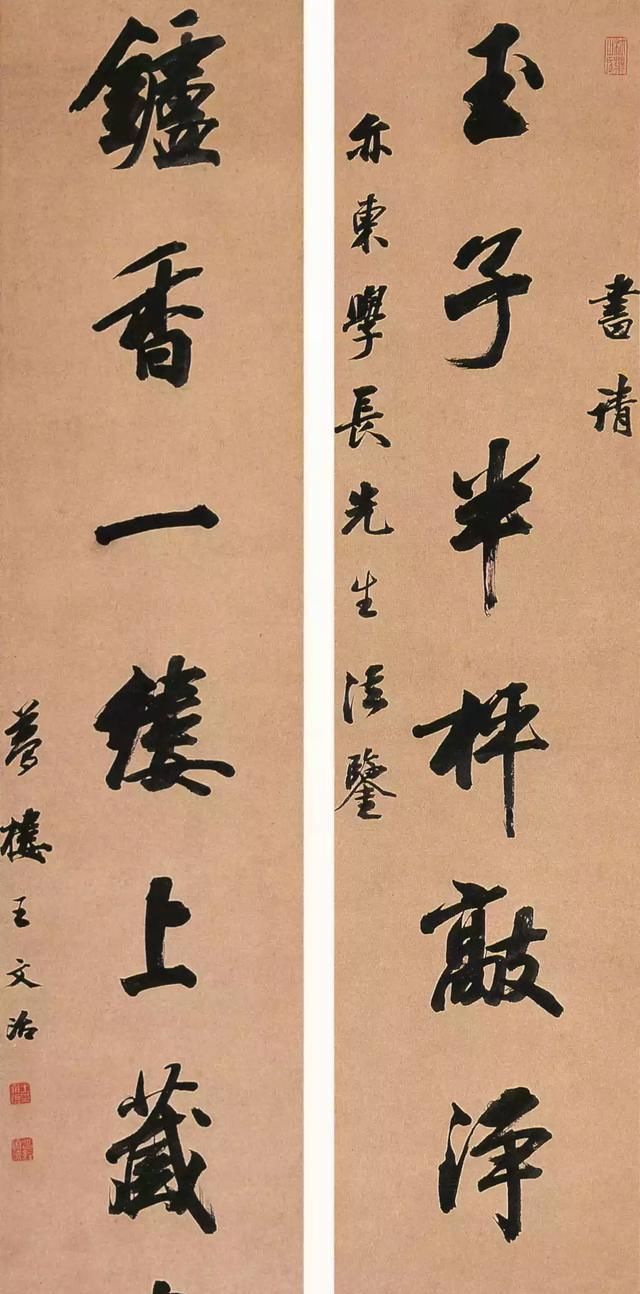 書請
玉子半枰敲净
亦東學長先生法鑒
鑪香一縷上藏
夢樓王文治